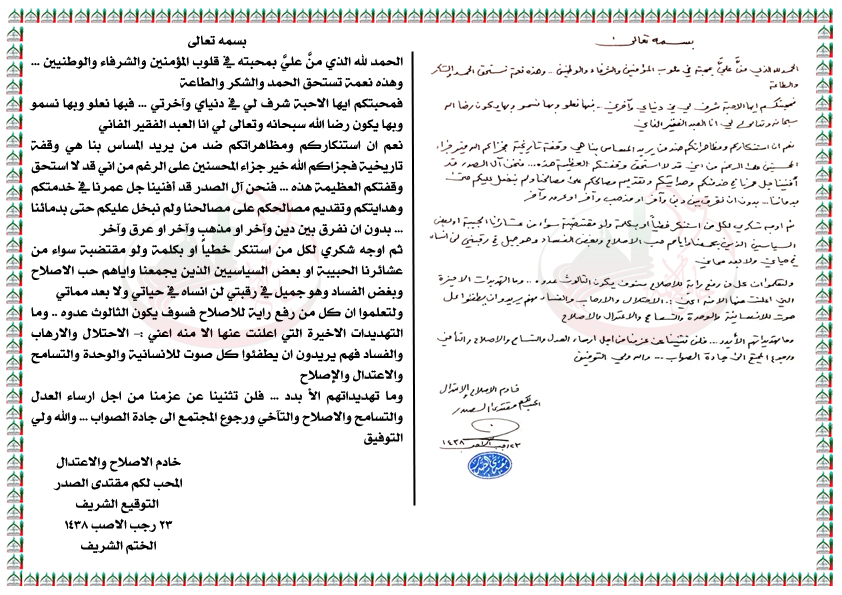 بسمه تعالى
الحمد لله الذي منَّ عليَّ بمحبته في قلوب المؤمنين والشرفاء والوطنيين .. وهذه نعمة تستحق الحمد والشكر
والطاعة
فمحبتكم ايها الاحبة شرف لي في دنياي وآخرتي .. فبها نعلو وبها نسمو وبها يكون رضا الله
سبحانه وتعالى لي انا العبد الفقير الفاني
نعم ان استنكاركم ومظاهراتكم ضد من يريد المساس بنا هي وقفة تاريخية فجزاكم الله خير جزاء
المحسنين على الرغم من اني قد لا استحق وقفتكم العظيمة هذه ... فنحن آل الصدر قد
أفنينا جل عمرنا في خدمتكم وهدايتكم وتقديم مصالحكم على مصالحنا ولم نبخل عليكم حتى
بدمائنا .. بدون ان نفرق بين دين وآخر او مذهب وآخر او عرق وآخر
ثم اوجه شكري لكل من استنكر خطياً او بكلمة ولو مقتضبة سواء من عشائرنا الحبيبة او بعض
السياسيين الذين يجمعنا واياهم حب الاصلاح وبغض الفساد وهو جميل في رقبتي لن انساه
في حياتي ولا بعد مماتي
ولتعلموا ان كل من رفع راية للاصلاح فسوف يكون الثالوث عدوه .. وما التهديدات الاخيرة
التي اعلنت عنها الا منه اعني :- الاحتلال والارهاب والفساد فهم يريدون ان يطفئوا كل
صوت للانسانية والوحدة والتسامح والاعتدال والاصلاح
وما تهديداتهم الا بدد ... فلن تثنينا عن عزمنا من اجل ارساء العدل والتسامح والاصلاح والتآخي
ورجوع المجتمع الى جادة الصواب ... والله ولي التوفيق
خادم الاصلاح والاعتدال
المحب لكم مقتدى الصدر
٢٣ رجب الاصب ١٤٣٨
بسمه تعالى
الحمد لله الذي منَّ عليَّ بمحبته في قلوب المؤمنين والشرفاء والوطنيين ...
وهذه نعمة تستحق الحمد والشكر والطاعة
فمحبتكم ايها الاحبة شرف لي في دنياي وآخرتي ... فبها نعلو وبها نسمو
وبها يكون رضا الله سبحانه وتعالى لي انا العبد الفقير الفاني
نعم ان استنكاركم ومظاهراتكم ضد من يريد المساس بنا هي وقفة
تاريخية فجزاكم الله خير جزاء المحسنين على الرغم من اني قد لا استحق
وقفتكم العظيمة هذه ... فنحن آل الصدر قد أفنينا جل عمرنا في خدمتكم
وهدايتكم وتقديم مصالحكم على مصالحنا ولم نبخل عليكم حتى بدمائنا
... بدون ان نفرق بين دين وآخر او مذهب وآخر او عرق وآخر
ثم اوجه شكري لكل من استنكر خطياً او بكلمة ولو مقتضبة سواء من
عشائرنا الحبيبة او بعض السياسيين الذين يجمعنا واياهم حب الاصلاح
وبغض الفساد وهو جميل في رقبتي لن انساه في حياتي ولا بعد مماتي
ولتعلموا ان كل من رفع راية للاصلاح فسوف يكون الثالوث عدوه .. وما
التهديدات الاخيرة التي اعلنت عنها الا منه اعني :- الاحتلال والارهاب
والفساد فهم يريدون ان يطفئوا كل صوت للانسانية والوحدة والتسامح
والاعتدال والإصلاح
وما تهديداتهم الأ بدد ... فلن تثنينا عن عزمنا من اجل ارساء العدل
والتسامح والاصلاح والتآخي ورجوع المجتمع الى جادة الصواب ... والله ولي
التوفيق
خادم الاصلاح والاعتدال
المحب لكم مقتدى الصدر
التوقيع الشريف
٢٣ رجب الاصب ١٤٣٨
الختم الشريف